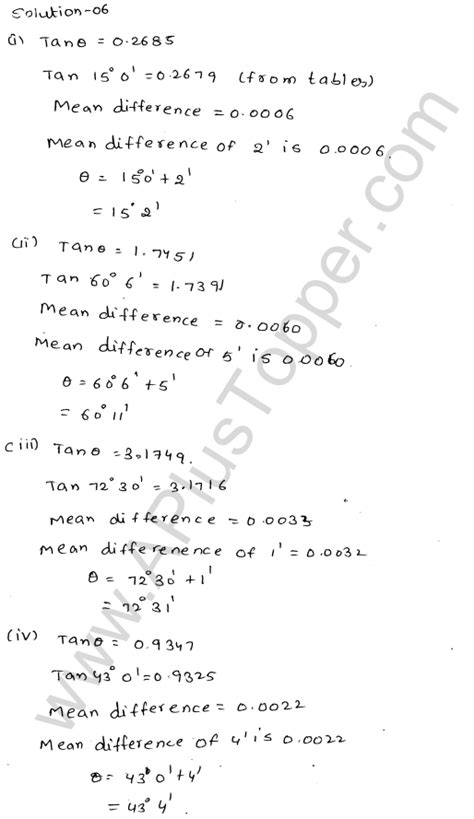 Solution-06
(i) Tanθ = 0.2685
Tan 15°0' = 0.2679 (from tables)
Mean difference = 0.0006
Mean difference of 2' is 0.0006.
θ = 15°0' + 2'
= 15°2'
(ii) Tanθ = 1.7451
Tan 60°6' = 1.7391
Mean difference = 0.0060
Mean difference of 5' is 0.0060.
θ = 60°6' + 5'
= 60°11'
(iii) Tanθ = 3.1749.
Tan 72°30' = 3.1716
Mean difference = 0.0033
Mean differenence of 1' = 0.0032
θ = 72°30' + 1'
= 72°31'
(iv) Tanθ = 0.9347
Tan 43°0' = 0.9325
Mean difference = 0.0022
Mean difference of 4' is 0.0022
θ = 43°0' + 4'
= 43°4'.
www.APlusTopper.com